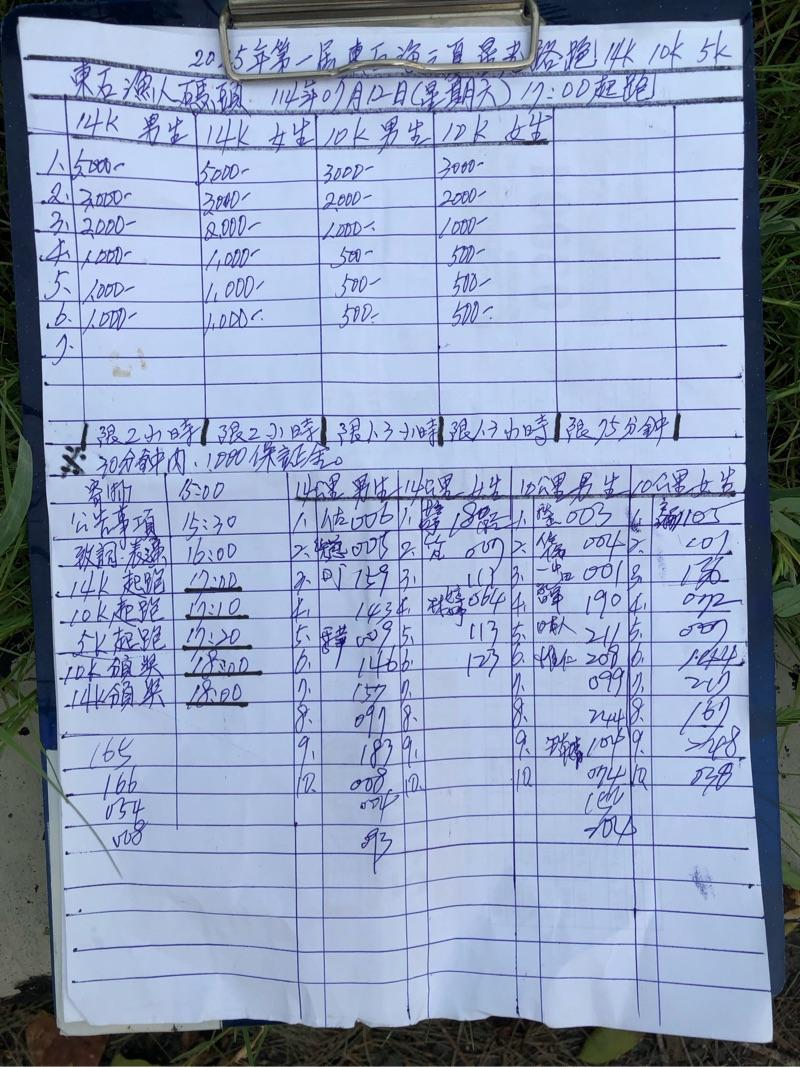 2025年第一届東石漁 夏 路跑14K 10K 5K
東石漁人碼頭 114年07月12日(星期六) 17:00起跑
14K 男生 14K 女生 10K 男生 10K 女生
1. 5000- 5000- 3000- 3000-
2. 3,000- 3000- 2000- 2000-
3. 2,000- 2,000- 1,000- 1000-
4. 1,000- 1,000- 500- 500-
5. 1,000- 1,000- 500- 500-
6. 1,000- 1,000- 500- 500-
7.
限2小時 限2小時 限1.3小時 限1.3小時 限75分鐘
※30分鐘內.1000保証金。
寄物 15:00 14公里 男生 14公里 女生 10公里男生 10公里女生
公告事項 15:30 1. 佑006 1. 1. 003 105
致詞 表演 16:00 2. 005 2. 007 2. 004 2. 107
14K 起跑 17:00 3. 159 3. 117 3. 001 3. 136
10K起跑 17:10 4. 143 4. 064 4. 190 4. 072
5K起跑 17:20 5. 009 5. 113 5. 211 5.
10K頒獎 18:00 6. 146 6. 123 6. 208 6.
14K頒獎 18:00 7. 157 7. 7. 099 7. 217
8. 097 8. 8. 244 8. 167
165 9. 183 9. 9. 104 9.
166 10. 008 10. 10. 074 10. 038
054 004
008 093 204